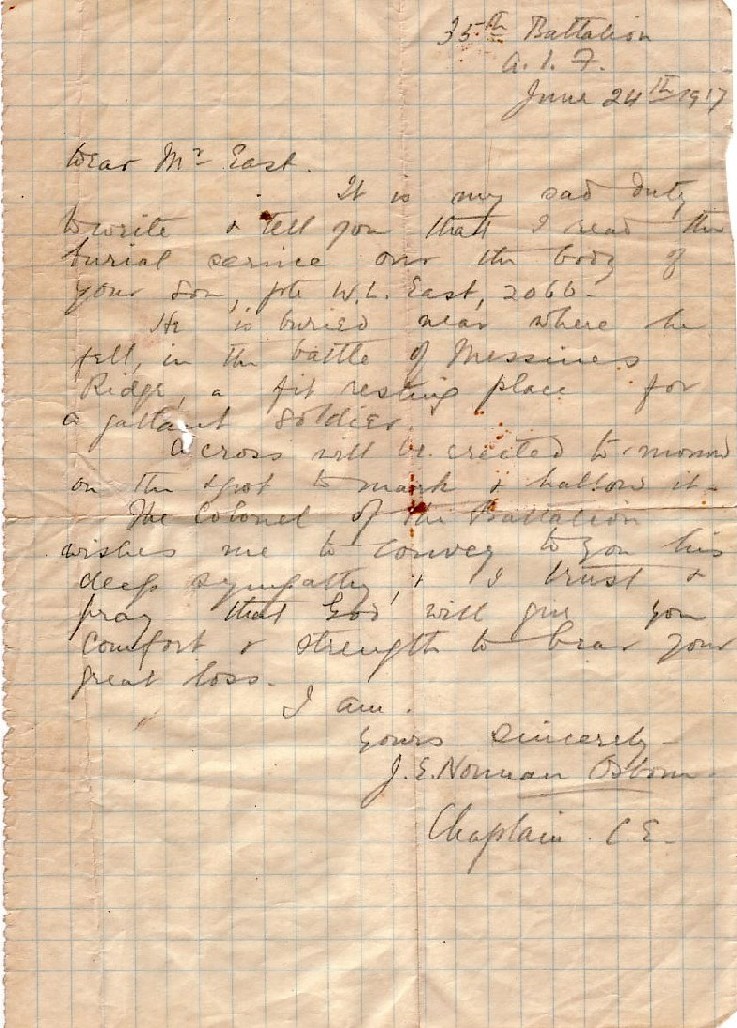 35th Battalion
A.I.F.
June 24th 1917
Dear Mr East.
It is my sad duty
to write & tell you that I read the
burial service over the body of
your son, pte W.L. East, 2066-
He is buried near where he
fell, in the battle of Messines
Ridge, a fit resting place for
a gallant soldier.
A cross will be erected tomorrow
on the spot to mark & hallow it-
The Colonel of the Battalion
wishes me to convey to you his
deep sympathy, & I trust &
pray that God will give you
comfort & strength to bear your
great loss.
I am.
Yours Sincerely-
J.E. Norman Osborn.
Chaplain. C E-